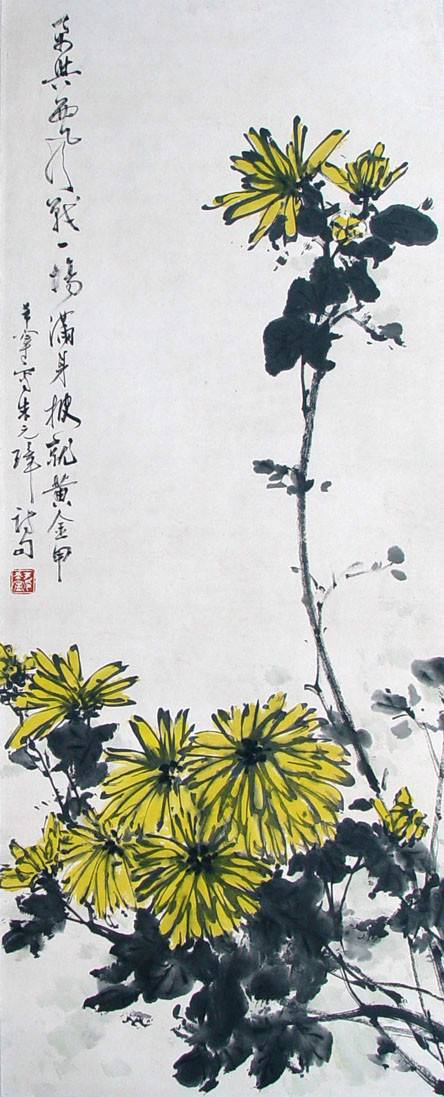 要與西風戰一場滿身披就黃金甲
寫朱元璋詩句